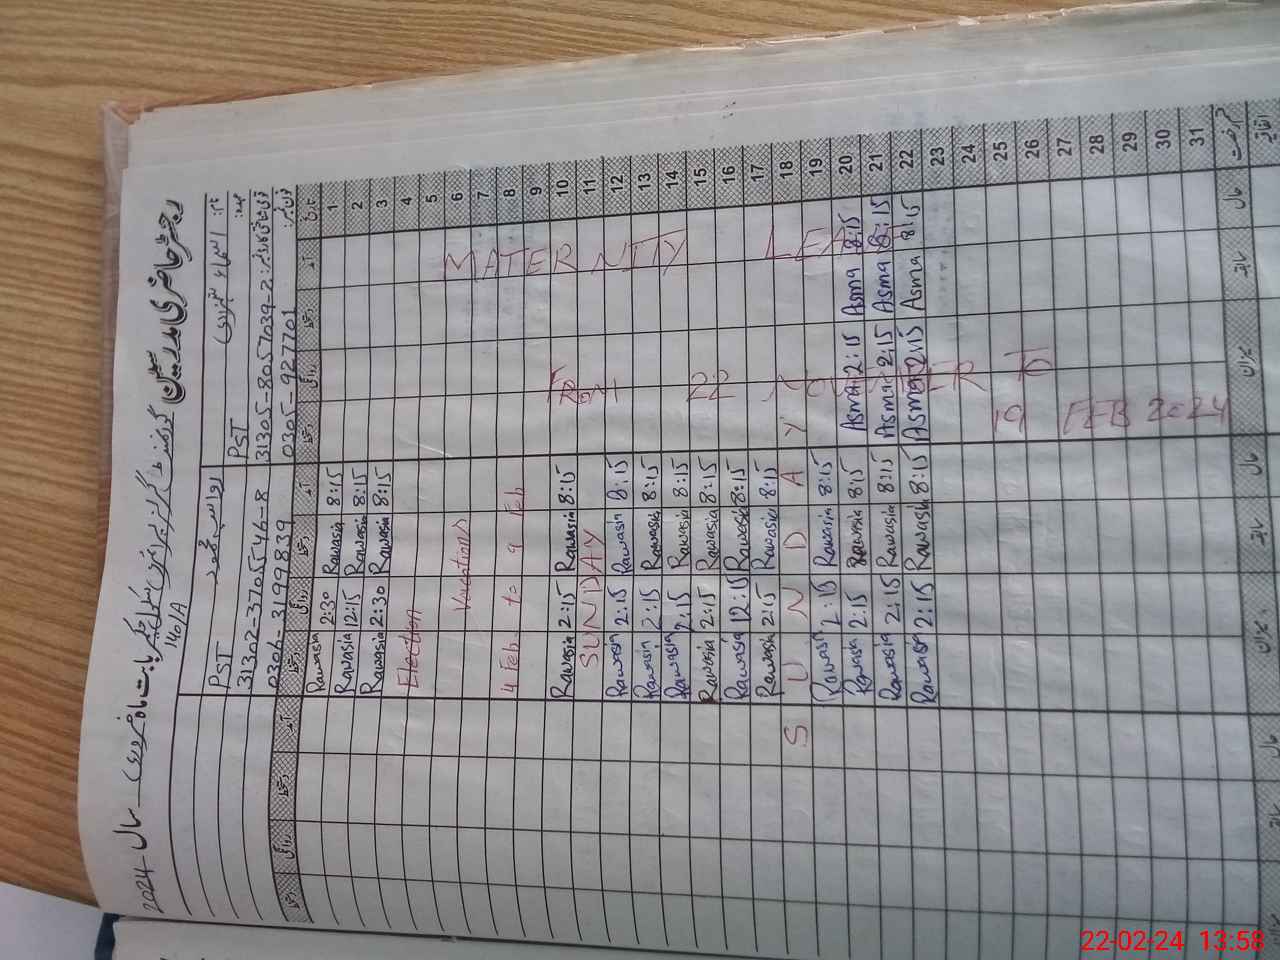 رجسٹر حاضری مدرسین
سال 2024
140/A
نام: اسماء
PST
31305-8057039-2
0305-9277701
PST
31302-3705546-8
0306-3199839
تاریخ آمد دستخط روانگی دستخط آمد دستخط روانگی دستخط آمد دستخط روانگی دستخط
1 Rawasia 8:15 2:30 Rawasia
2 Rawasia 8:15 12:15 Rawasia
3 Rawasia 8:15 2:30 Rawasia
4 Election
5
6 Vacations
7
8 4 Feb to 9 Feb
9
10 Rawasia 8:15 2:15 Rawasia
11 SUNDAY
12 Rawasia 8:15 2:15 Rawasia
13 Rawasia 8:15 2:15 Rawasia
14 Rawasia 8:15 2:15 Rawasia
15 Rawasia 8:15 2:15 Rawasia
16 Rawasia 8:15 12:15 Rawasia
17 Rawasia 8:15 2:15 Rawasia
18 SUNDAY
19 Rawasia 8:15 2:15 Rawasia
20 8:15 Asma 2:15 Asma 8:15 Rawasia 2:15 Rawasia
21 8:15 Asma 2:15 Asma 8:15 Rawasia 2:15 Rawasia
22 8:15 Asma 2:15 Asma 8:15 Rawasia 2:15 Rawasia
23
24
25
26
27
28
29
30
31
MATERNITY LEA
FROM 22 NOVEMBER TO
19 FEB 2024
22-02-24 13:58